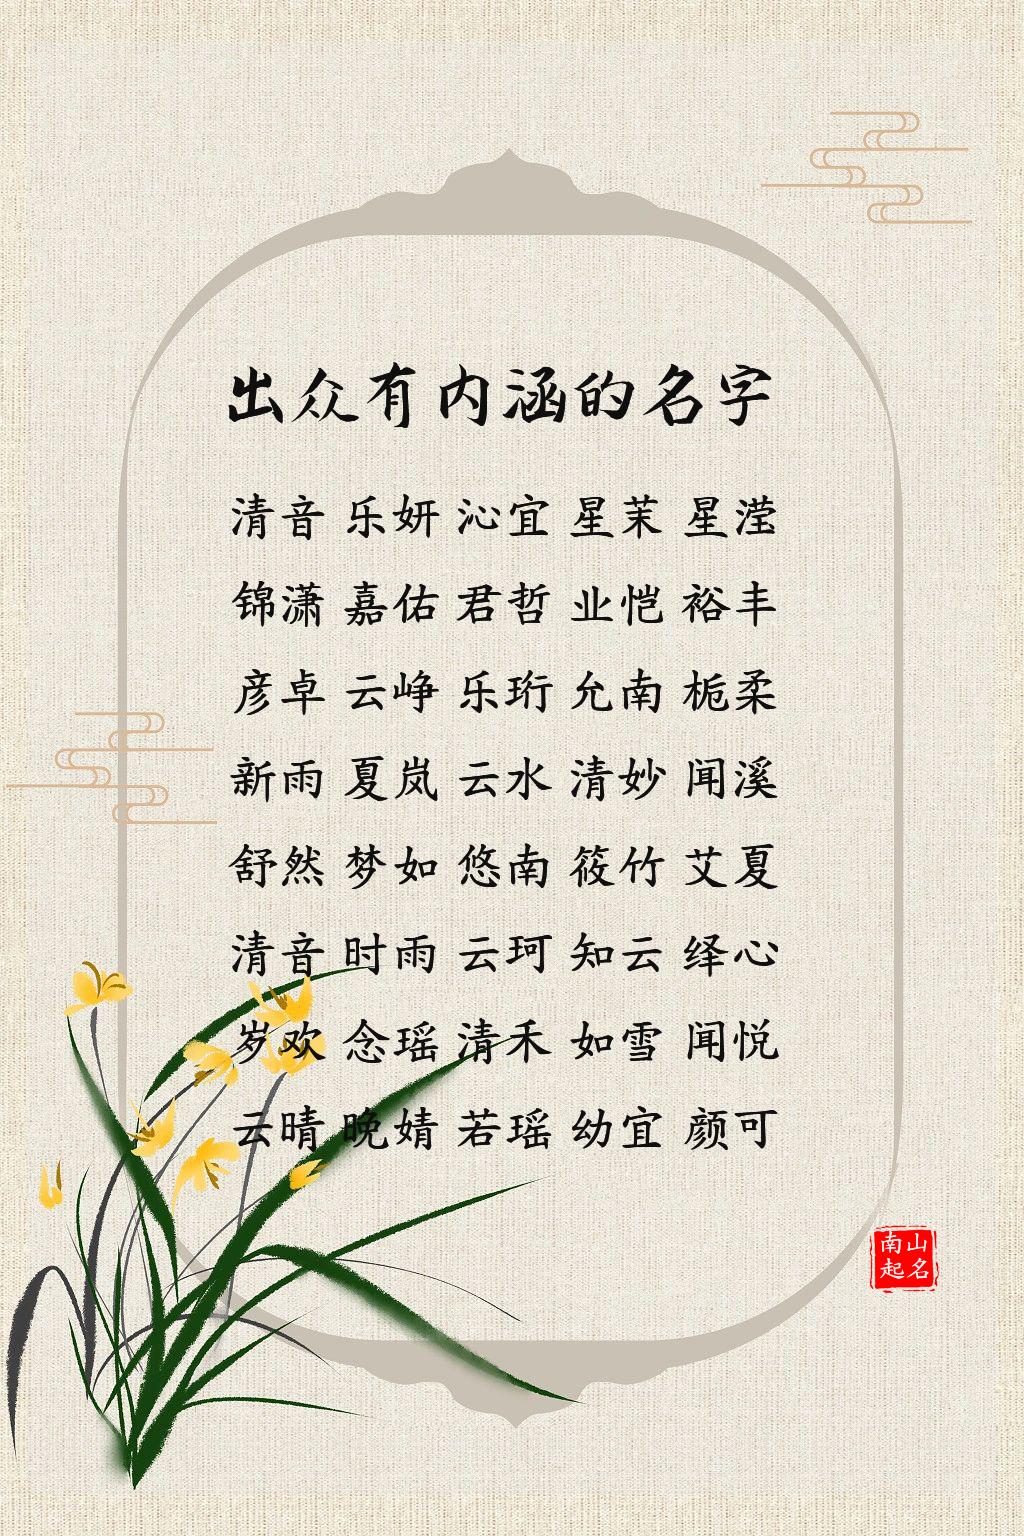 出众有内涵的名字
清音 乐妍 沁宜 星茉 星滢
锦潇 嘉佑 君哲 业恺 裕丰
彦卓 云峥 乐珩 允南 栀柔
新雨 夏岚 云水 清妙 闻溪
舒然 梦如 悠南 筱竹 艾夏
清音 时雨 云珂 知云 绎心
岁欢 念瑶 清禾 如雪 闻悦
云晴 晚婧 若瑶 幼宜 颜可
南山
起名